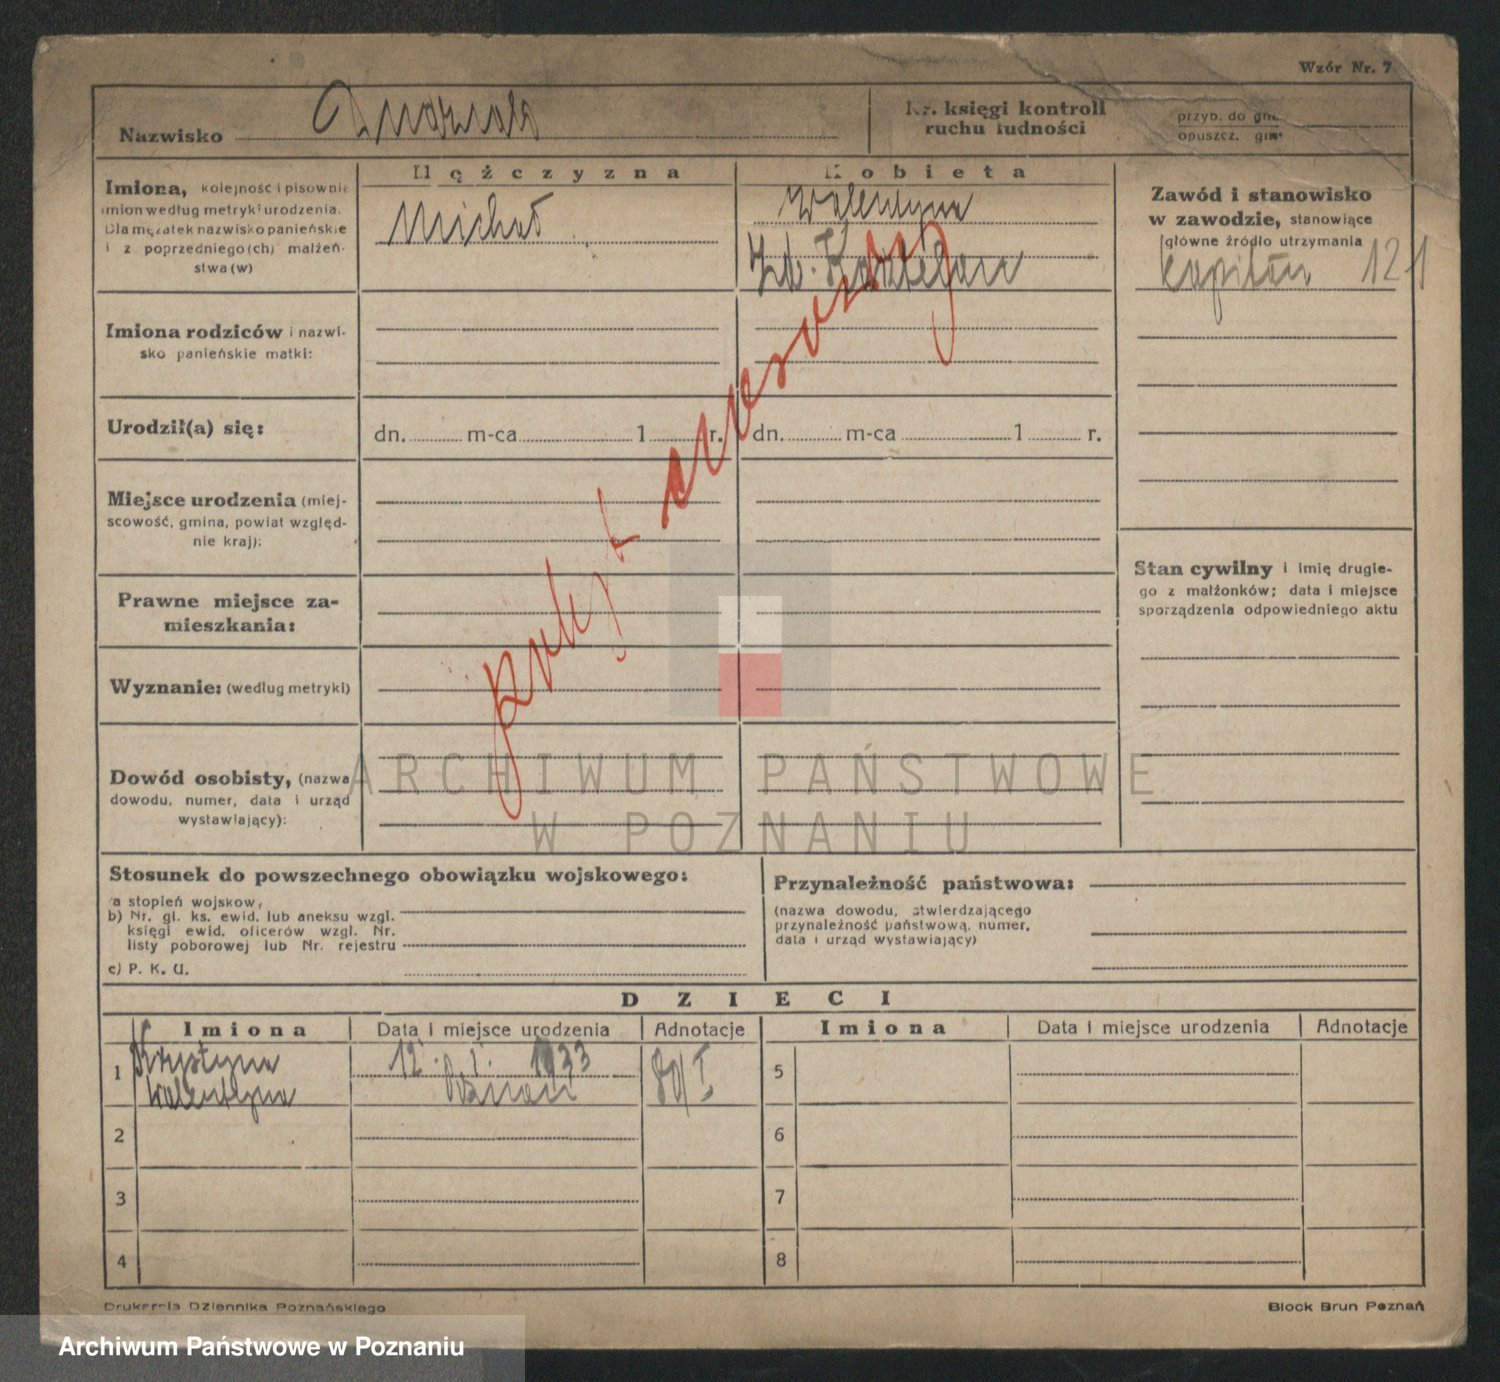 Wzór Nr. 7
Nazwisko
Nr. księgi kontroli
ruchu ludności
przyb. do gm.
opuszcz. gm.
Imiona, kolejność i pisownie
imion według metryki urodzenia.
Dla mężatek nazwisko panieńskie
i z poprzedniego (ch) małżeń-
stwa (w)
Mężczyzna
Michał
Kobieta
Walentyna
Zawód i stanowisko
w zawodzie, stanowiące
główne źródło utrzymania
kapitan 121
Imiona rodziców i nazwi-
sko panieńskie matki:
Urodził(a) się:
dn. m-ca 1 r.
dn. m-ca 1 r.
Miejsce urodzenia (miej-
scowość, gmina, powiat względ-
nie kraj):
Prawne miejsce za-
mieszkania:
Wyznanie: (według metryki)
Dowód osobisty, (nazwa
dowodu, numer, data i urząd
wystawiający):
Stan cywilny i imię drugie-
go z małżonków; data i miejsce
sporządzenia odpowiedniego aktu
ARCHIWUM PAŃSTWOWE
W POZNANIU
Stosunek do powszechnego obowiązku wojskowego:
a stopień wojskow,
b) Nr. gl. ks. ewid. lub aneksu wzgl.
księgi ewid. oficerów wzgl. Nr.
listy poborowej lub Nr. rejestru
c) P. K. U.
Przynależność państwowa:
(nazwa dowodu, stwierdzającego
przynależność państwową, numer,
data i urząd wystawiający)
DZIECI
Imiona Data i miejsce urodzenia Adnotacje Imiona Data i miejsce urodzenia Adnotacje
1 Krystyna 12. I. 1933 5
Walentyna Poznań 80/I
2 6
3 7
4 8
Drukarnia Dziennika Poznańskiego
Block Brun Poznań
Archiwum Państwowe w Poznaniu